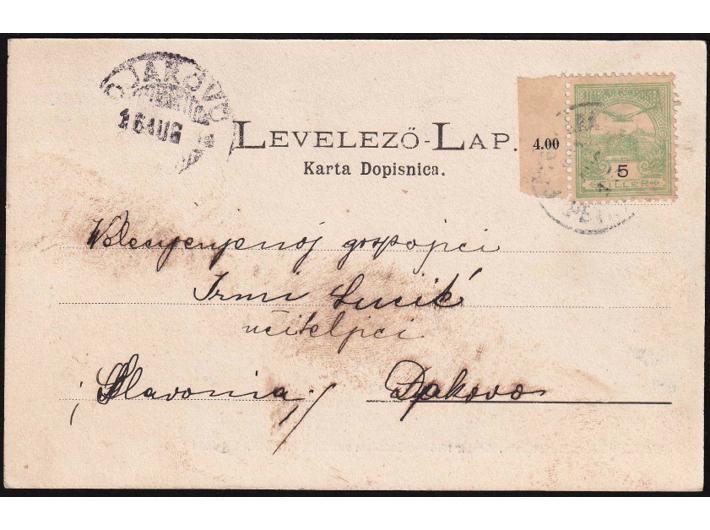 DJAKOVO
16 AUG
LEVELEZŐ-LAP.
Karta Dopisnica.
4.00
5
FILLER
gospojci
Irmi Lucić
učiteljici
Slavonia
Djakovo